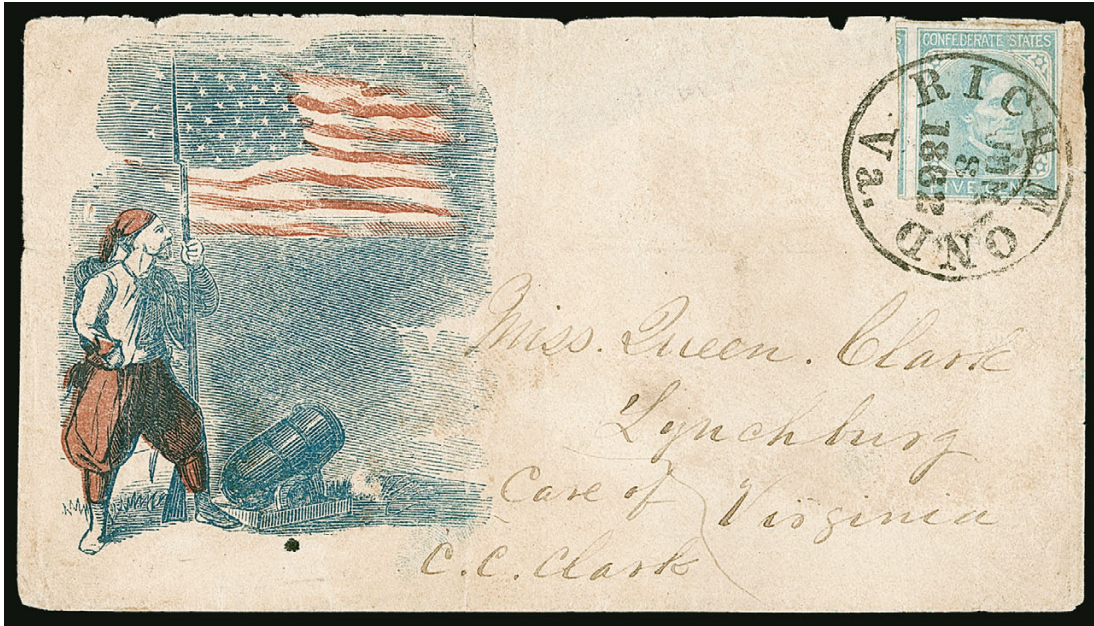 CONFEDERATE STATES
FIVE
RICHMOND Va.
8
1862
Miss. Queen. Clark
Lynchburg
Care of Virginia
C. C. Clark